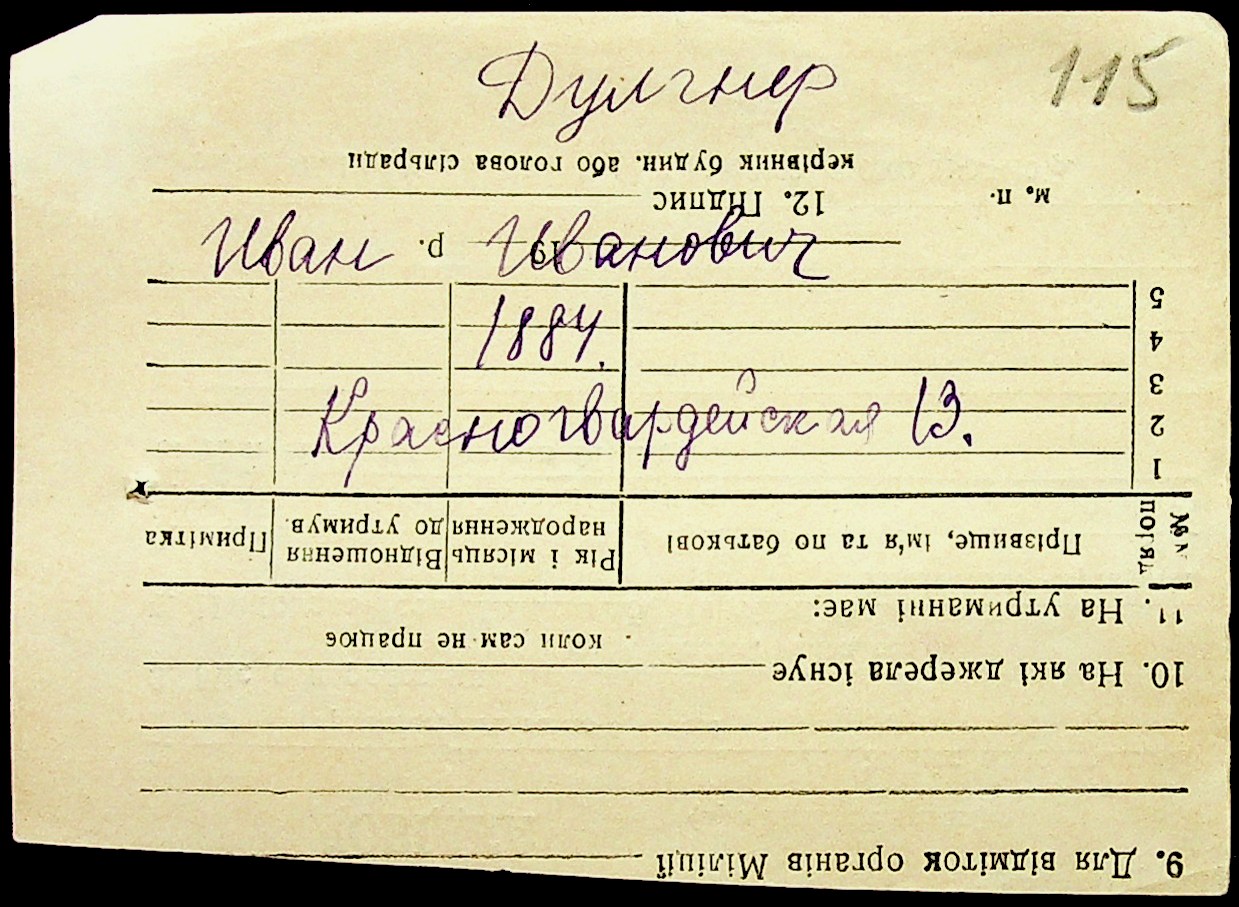 115
Дулгнер
Иван Иванович
1884.
Красногвардейская 13.
9. Для відміток органів Міліції
10. На які джерела існує
коли сам не працює
11. На утриманні має:
№№ поряд
Прізвище, ім'я та по батькові
Рік і місяць народження
Відношення до утримув.
Примітка
1
2
3
4
5
19 р.
12. Підпис
м. п.
керівник будин. або голова сільради